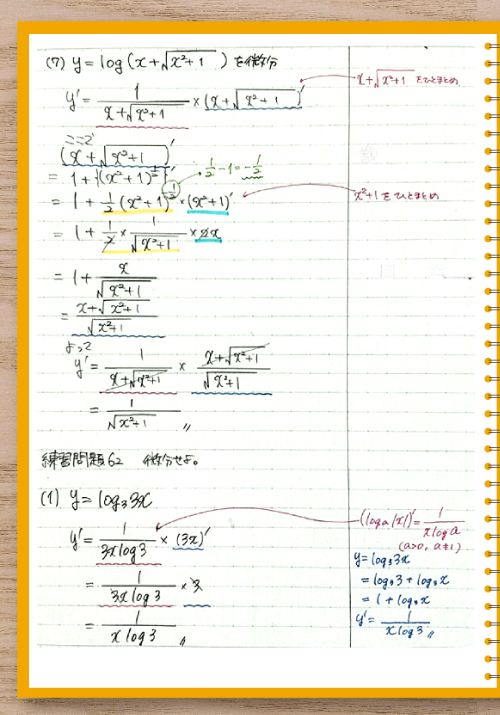 (7) y = log(x+√x²+1) を微分
x+√x²+1 をひとまとめ
y' = 1/(x+√x²+1) × (x+√x²+1)'
ここで
(x+√x²+1)'
= 1+{(x²+1)^½}'
½-1=-½
= 1+½(x²+1)^-½ × (x²+1)'
x²+1 をひとまとめ
= 1+½ × 1/√x²+1 × 2x
= 1+ x/√x²+1
= (x+√x²+1)/√x²+1
よって
y' = 1/(x+√x²+1) × (x+√x²+1)/√x²+1
= 1/√x²+1 〃
練習問題62 微分せよ。
(1) y = log₃3x
(loga|x|)' = 1/(x log a)
(a>0, a≠1)
y' = 1/(3x log 3) × (3x)'
= 1/(3x log 3) × 3
= 1/(x log 3) 〃
y = log₃3x
= log₃3 + log₃x
= 1 + log₃x
y' = 1/(x log 3) 〃